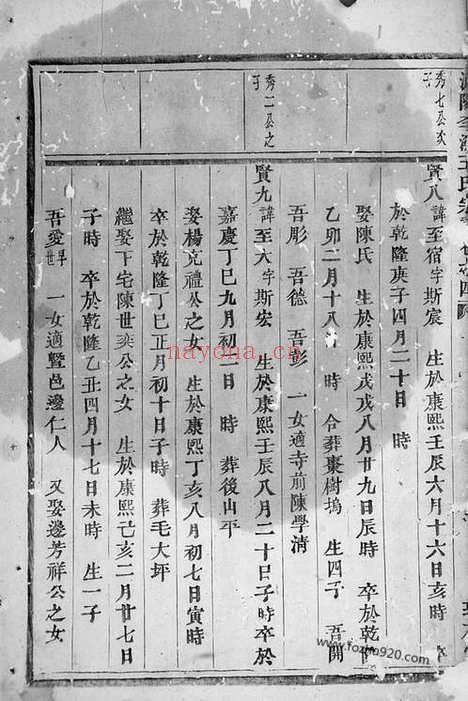 秀七公次
子
賢八諱至宿字斯宸 生於康熙壬辰六月十六日亥時 卒
於乾隆庚子四月二十日 時
娶陳氏 生於康熙戊戌八月廿九日辰時 卒於乾隆
乙卯二月十八 時 合葬棗樹塢 生四子 吾開
吾彫 吾德 吾彭 一女適寺前陳學清
秀二公之
子
賢九諱至大字斯宏 生於康熙壬辰八月二十日子時卒於
嘉慶丁巳九月初二日 時 葬後山平
娶楊克禮公之女 生於康熙丁亥八月初七日寅時
卒於乾隆丁巳正月初十日子時 葬毛大坪
繼娶下宅陳世奕公之女 生於康熙己亥二月廿七日
子時 卒於乾隆乙丑四月十七日未時 生一子
吾愛早世 一女適暨邑邊仁人 又娶邊芳祥公之女
nayona.cn
www.fozhu920.com